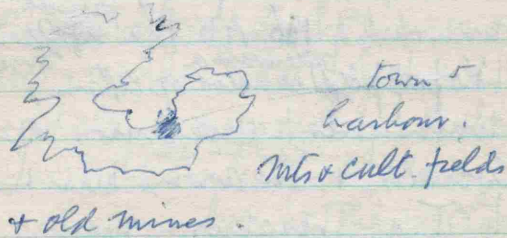 town &
harbour.
Mts & cult. fields
& old mines.